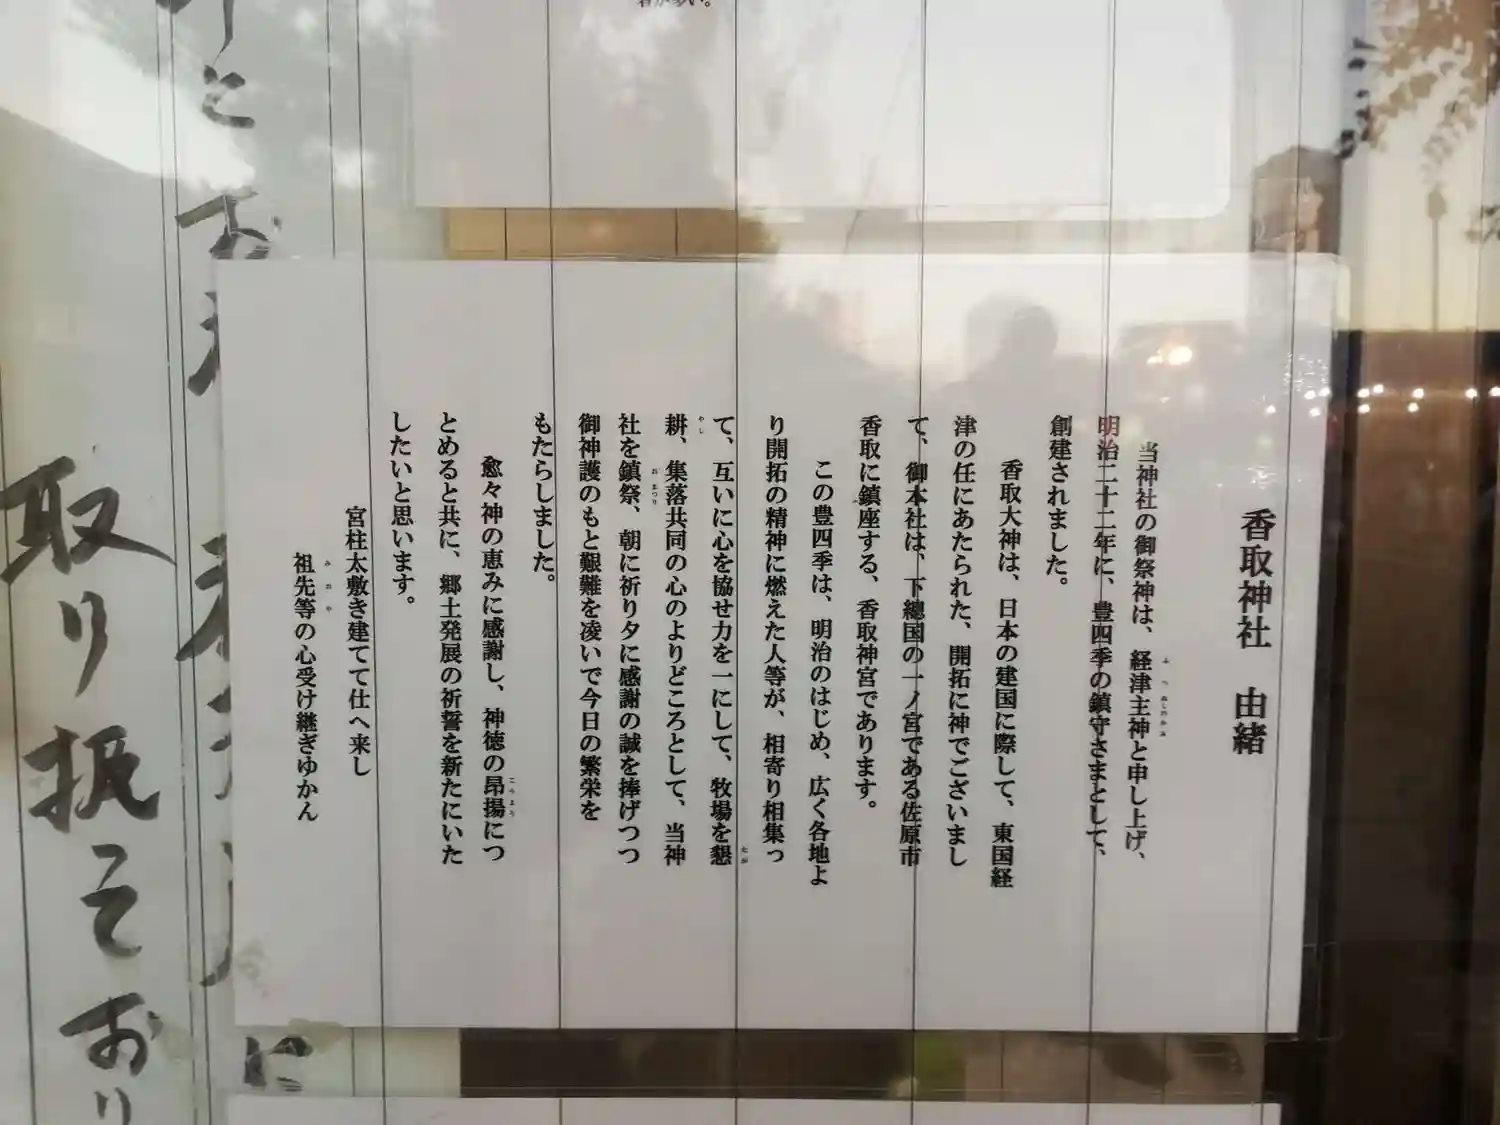 香取神社　由緒
当神社の御祭神は、経津主神と申し上げ、
明治二十二年に、豊四季の鎮守さまとして、
創建されました。
香取大神は、日本の建国に際して、東国経
津の任にあたられた、開拓に神でございまし
て、御本社は、下總国の一ノ宮である佐原市
香取に鎮座する、香取神宮であります。
この豊四季は、明治のはじめ、広く各地よ
り開拓の精神に燃えた人等が、相寄り相集っ
て、互いに心を協せ力を一にして、牧場を懇
耕、集落共同の心のよりどころとして、当神
社を鎮祭、朝に祈り夕に感謝の誠を捧げつつ
御神護のもと艱難を凌いで今日の繁栄を
もたらしました。
愈々神の恵みに感謝し、神徳の昂揚につ
とめると共に、郷土発展の祈誓を新たにいた
したいと思います。
宮柱太敷き建てて仕へ来し
祖先等の心受け継ぎゆかん
に
取り扱ており